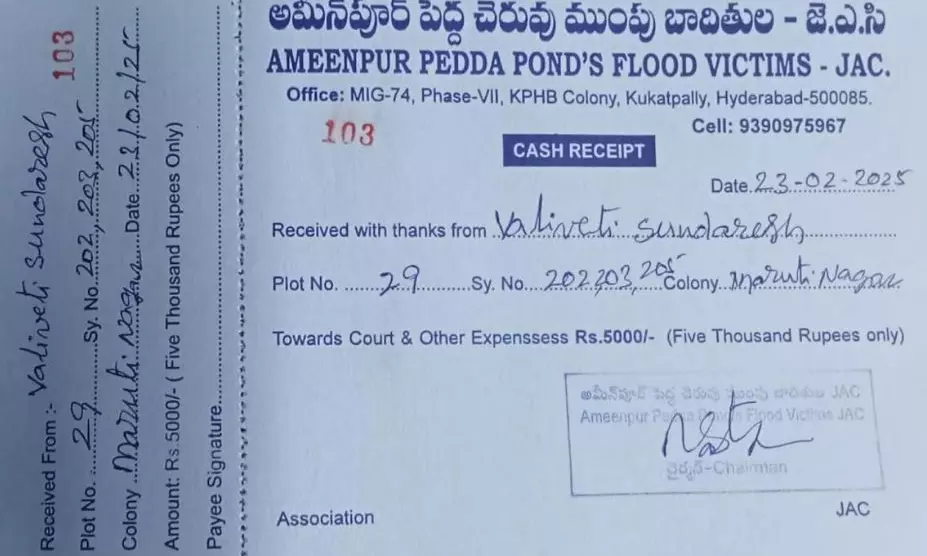 Received From :- Valiveti Sundaresh 103
Plot No. 29 Sy. No. 202, 203, 205
Colony Maruti Nagar Date 23/02/25
Amount: Rs.5000/- ( Five Thousand Rupees Only)
Payee Signature
అమీన్‌పూర్ పెద్ద చెరువు ముంపు బాదితుల - జె.ఎ.సి
AMEENPUR PEDDA POND'S FLOOD VICTIMS - JAC.
Office: MIG-74, Phase-VII, KPHB Colony, Kukatpally, Hyderabad-500085.
Cell: 9390975967
103
CASH RECEIPT
Date. 23-02-2025
Received with thanks from Valiveti Sundaresh
Plot No. 29 Sy. No. 202,203, 205 Colony Maruti Nagar
Towards Court & Other Expensess Rs.5000/- (Five Thousand Rupees only)
అమీన్‌పూర్ పెద్ద చెరువు ముంపు బాదితులు JAC
Ameenpur Pedda Ponds Flood Victims JAC
ఛైర్మన్-Chairman
Association
JAC